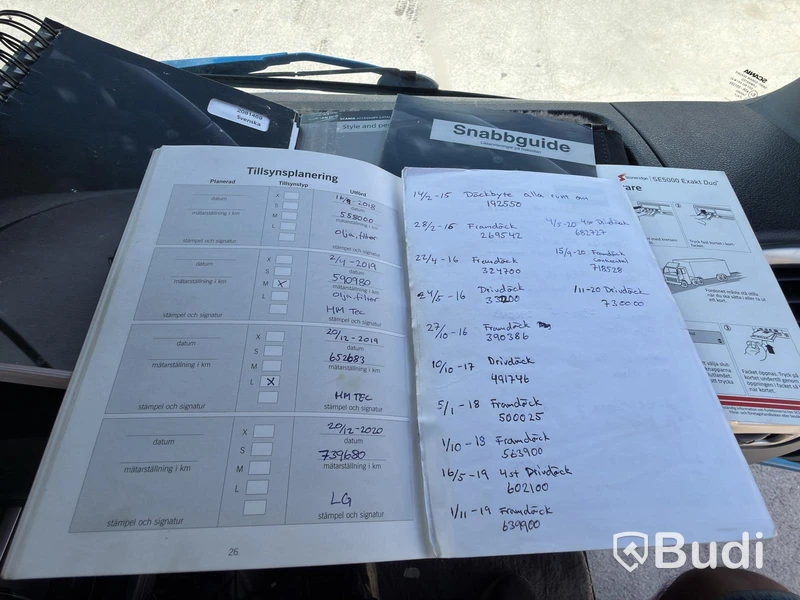 2081489
Svenska
Style and pe
Snabbguide
Stoneridge | SE5000 Exakt Duo²
SCANIA
Tillsynsplanering
Planerad Tillsynstyp Utförd
X
S
M
L
datum
mätarställning i km
stämpel och signatur
-2018
datum
558000
mätarställning i km
olja.filter
stämpel och signatur
X
S
M X
L
datum
mätarställning i km
stämpel och signatur
2/4-2019
datum
590980
mätarställning i km
olja.filter
HM TEC
stämpel och signatur
X
S
M
L X
datum
mätarställning i km
stämpel och signatur
20/12-2019
datum
652683
mätarställning i km
HM TEC
stämpel och signatur
X
S
M
L
datum
mätarställning i km
stämpel och signatur
20/12-2020
datum
739680
mätarställning i km
LG
stämpel och signatur
26
14/2-15 Däckbyte alla runt om
192550
28/2-16 Framdäck
269542
22/4-16 Framdäck
324700
24/5-16 Drivdäck
27/10-16 Framdäck
390386
10/10-17 Drivdäck
491746
5/1-18 Framdäck
500025
1/10-18 Framdäck
563900
16/5-19 4st Drivdäck
602100
1/11-19 Framdäck
639900
4/5-20 4st Divdäck
682727
15/9-20 Framdäck
Continental
718528
1/11-20 Drivdäck
730000
Budi